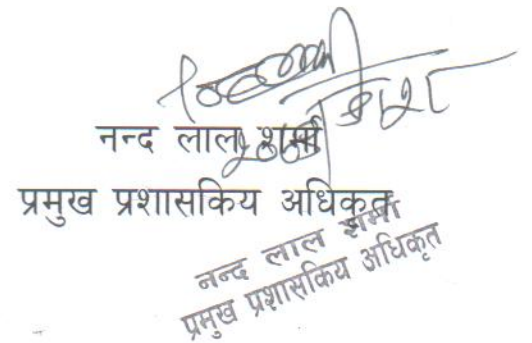 नन्द लाल शर्मा
प्रमुख प्रशासकिय अधिकृत
नन्द लाल शर्मा
प्रमुख प्रशासकिय अधिकृत